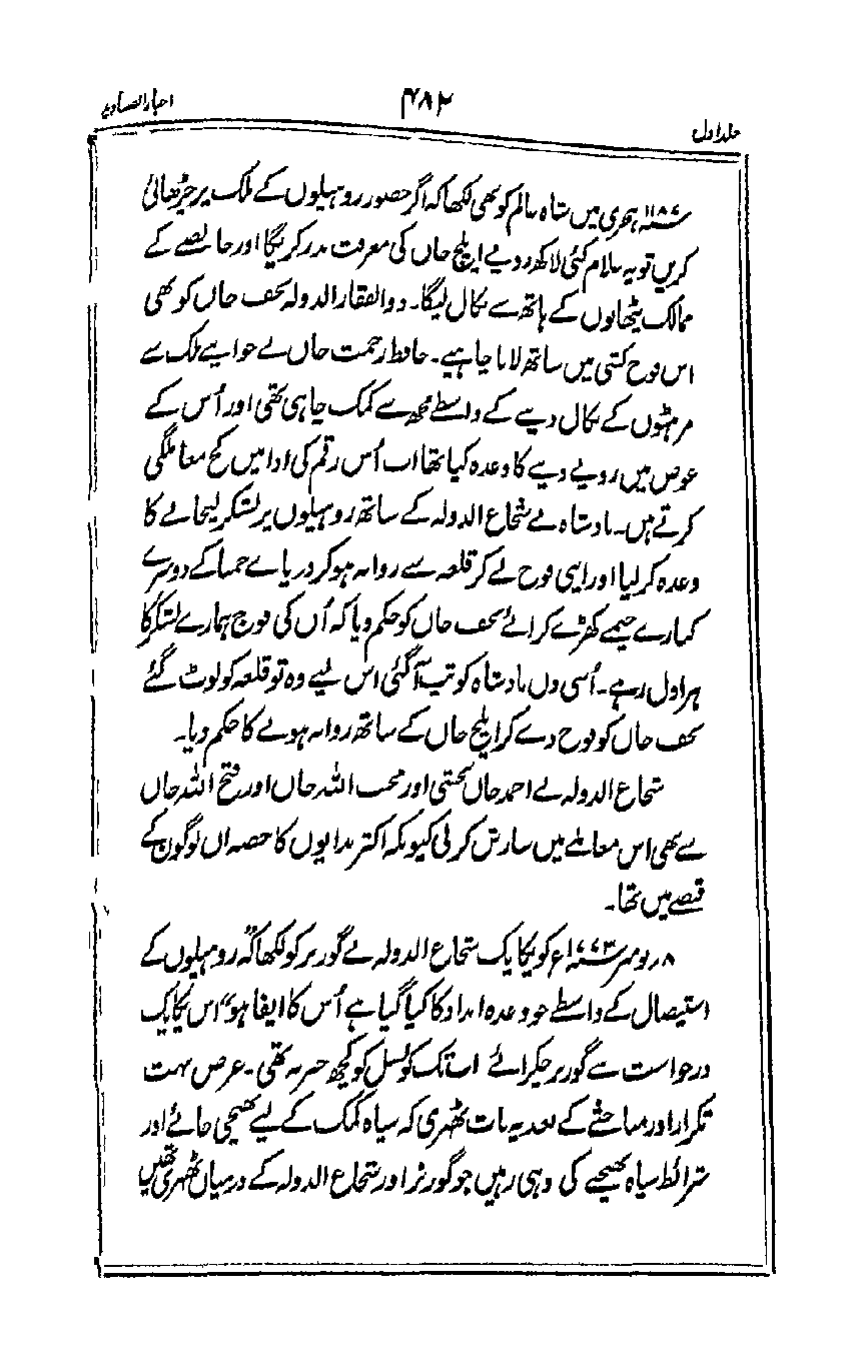 اخبار الصنادید
۴۸۲
جلد اول
۱۱۸۷ ہجری میں شاہ عالم کو بھی لکھا کہ اگر حضور روہیلوں کے ملک پر چڑھائی
کریں تو یہ غلام کئی لاکھ روپے ایلچ خاں کی معرفت نذر کریگا اور خالصے کے
ممالک پٹھانوں کے ہاتھ سے نکال لیگا۔ ذوالفقار الدولہ نجف خاں کو بھی
اس فوج کشی میں ساتھ لانا چاہیے۔ حافظ رحمت خاں نے جو اپنے ملک سے
مرہٹوں کے نکال دینے کے واسطے مجھ سے کمک چاہی تھی اور اُس کے
عوض میں روپے دینے کا وعدہ کیا تھا اب اُس رقم کی ادا میں کج معاملگی
کرتے ہیں۔ بادشاہ نے شجاع الدولہ کے ساتھ روہیلوں پر لشکر لیجانے کا
وعدہ کر لیا اور اپنی فوج لے کر قلعہ سے روانہ ہو کر دریاے جمنا کے دوسرے
کنارے خیمے کھڑے کرائے نجف خاں کو حکم دیا کہ اُن کی فوج ہمارے لشکر کا
ہراول رہے۔ اُسی دن بادشاہ کو تپ آ گئی اس لیے وہ تو قلعہ کو لوٹ گئے
نجف خاں کو فوج دے کر ایلچ خاں کے ساتھ روانہ ہونے کا حکم دیا۔
شجاع الدولہ نے احمد خاں بخشی اور محب اللہ خاں اور فتح اللہ خاں
سے بھی اس معاملے میں سازش کر لی کیونکہ اکثر بدایوں کا حصہ ان لوگوں کے
قبضے میں تھا۔
۸ نومبر ۱۷۷۳ء کو یکایک شجاع الدولہ نے گورنر کو لکھا کہ "روہیلوں کے
استیصال کے واسطے جو وعدہ امداد کا کیا گیا ہے اُس کا ایفا ہو" اس یکایک
درخواست سے گورنر چکرائے ابتک کونسل کو کچھ خبر نہ تھی۔ غرض بہت
تکرار اور مباحثے کے بعد یہ بات ٹھہری کہ سپاہ کمک کے لیے بھیجی جائے اور
شرائط سپاہ بھیجنے کی وہی رہیں جو گورنر اور شجاع الدولہ کے درمیان ٹھہری تھیں